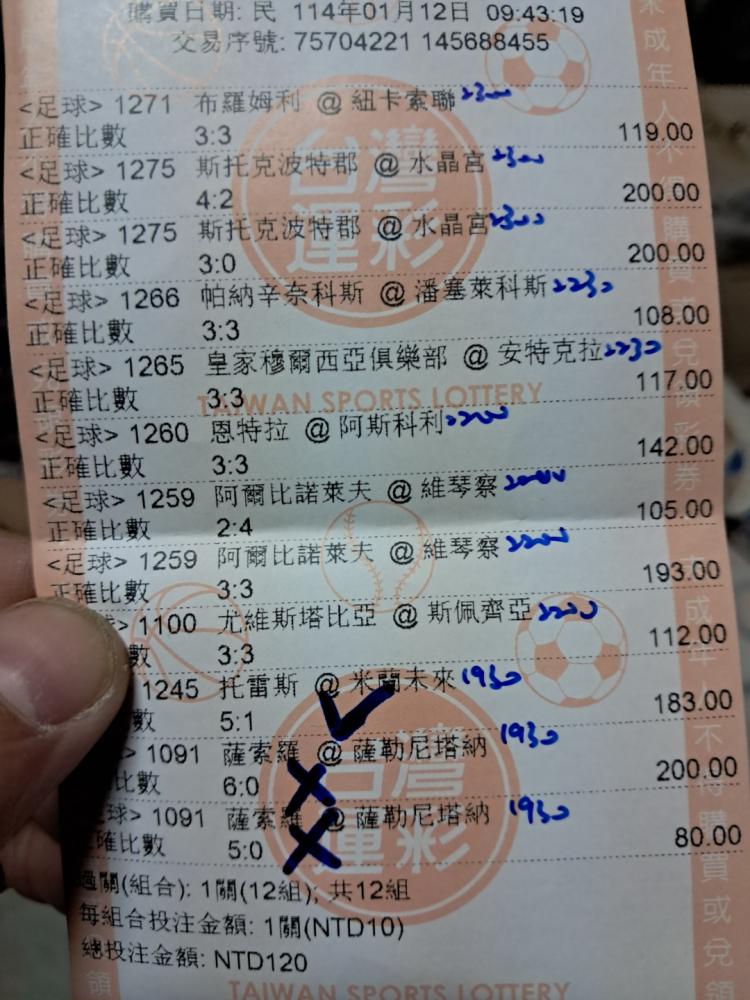 購買日期: 民 114年01月12日 09:43:19
交易序號: 75704221 145688455
<足球> 1271 布羅姆利 @ 紐卡索聯 2300
正確比數 3:3 119.00
<足球> 1275 斯托克波特郡 @ 水晶宮 2300
正確比數 4:2 200.00
<足球> 1275 斯托克波特郡 @ 水晶宮 2300
正確比數 3:0 200.00
<足球> 1266 帕納辛奈科斯 @ 潘塞萊科斯 2230
正確比數 3:3 108.00
<足球> 1265 皇家穆爾西亞俱樂部 @ 安特克拉 2230
正確比數 3:3 117.00
<足球> 1260 恩特拉 @ 阿斯科利 2200
正確比數 3:3 142.00
<足球> 1259 阿爾比諾萊夫 @ 維琴察
正確比數 2:4 105.00
<足球> 1259 阿爾比諾萊夫 @ 維琴察 2200
正確比數 3:3 193.00
> 1100 尤維斯塔比亞 @ 斯佩齊亞 2200
數 3:3 112.00
1245 托雷斯 @ 米蘭未來 1930
數 5:1 183.00
> 1091 薩索羅 @ 薩勒尼塔納 1930
比數 6:0 200.00
球> 1091 薩索羅 @ 薩勒尼塔納 1930
確比數 5:0 80.00
過關(組合): 1關(12組); 共12組
每組合投注金額: 1關(NTD10)
總投注金額: NTD120
台灣運彩
TAIWAN SPORTS LOTTERY
台灣運彩
TAIWAN SPORTS LOTTERY